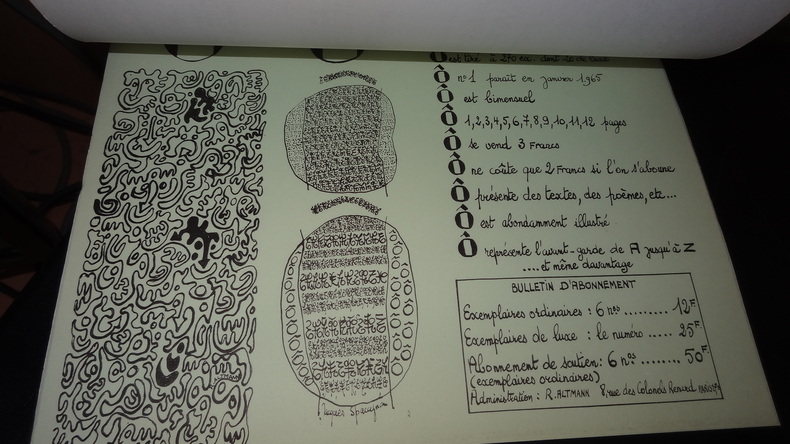 Ô est tiré à 270 ex. dont 20 de luxe
Ô n°1 paraît en janvier 1965
Ô est bimensuel
Ô 1,2,3,4,5,6,7,8,9,10,11,12 pages
Ô se vend 3 Francs
Ô ne coûte que 2 Francs si l'on s'abonne
Ô présente des textes, des poèmes, etc...
Ô est abondamment illustré.
Ô représente l'avant-garde de A jusqu'à Z
....et même davantage
BULLETIN D'ABONNEMENT
Exemplaires ordinaires : 6 nos ......... 12F.
Exemplaires de luxe : le numéro ..... 25F.
Abonnement de soutien : 6 nos ........ 50F.
(exemplaires ordinaires)
Administration : R. ALTMANN 8, rue des Colonels Renard PARIS 17e
Jacques Spacagna